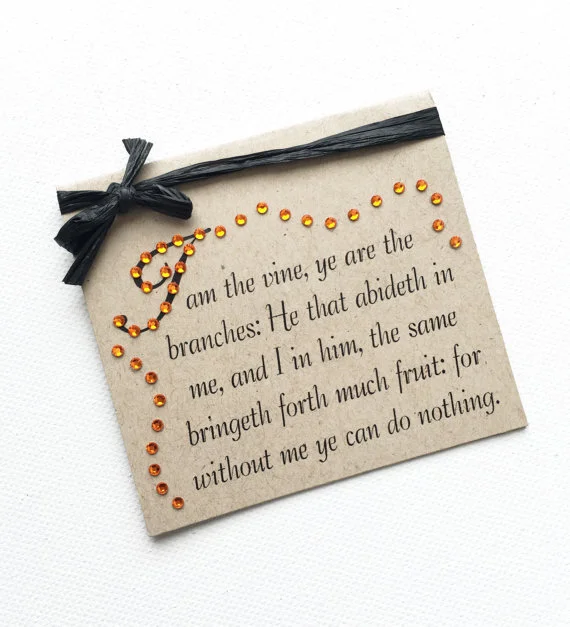 I am the vine, ye are the
branches: He that abideth in
me, and I in him, the same
bringeth forth much fruit: for
without me ye can do nothing.